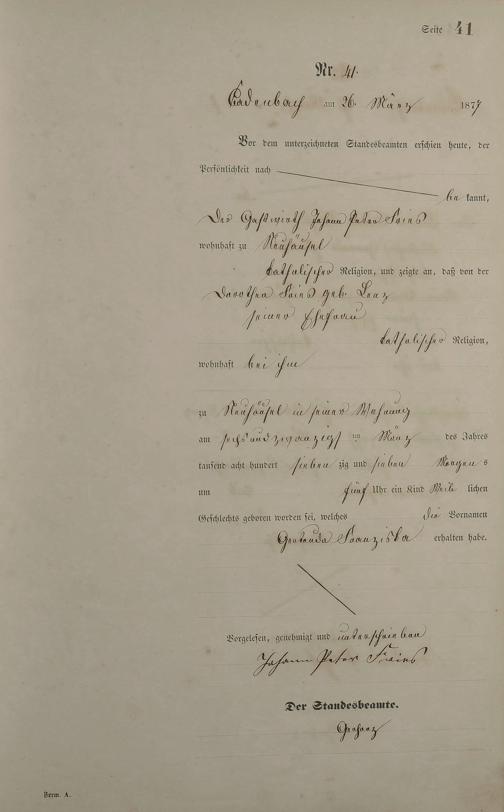 Seite 41
Nr. 41.
Cadenbach am 26. März 1877
Vor dem unterzeichneten Standesbeamten erschien heute, der
Persönlichkeit nach
be kannt,
Der Gastwirth Johann Peter Fries
wohnhaft zu Neuhäusel
katholischer Religion, und zeigte an, daß von der
Dorothea Fries geb. Lenz
seiner Ehefrau
katholischer Religion,
wohnhaft bei ihm
zu Neuhäusel in seiner Wohnung
am sechsundzwanzigst en März des Jahres
tausend acht hundert sieben zig und sieben Morgen s
um fünf Uhr ein Kind Weib lichen
Geschlechts geboren worden sei, welches die Vornamen
Gertruda Franziska erhalten habe.
Vorgelesen, genehmigt und unterschrieben
Johann Peter Fries
Der Standesbeamte.
Form. A.